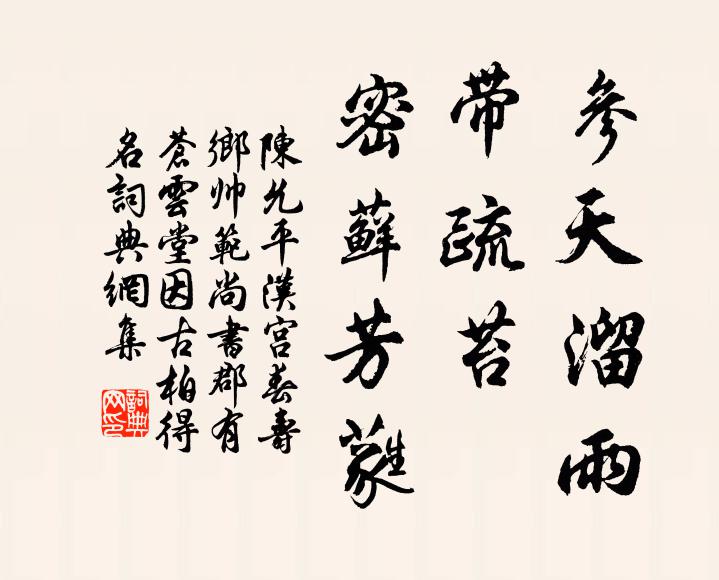 參天溜雨
帶疏苔
密蘚芳蕤
陳允平漢宮春壽
鄉帅範尚書郡有
蒼雲堂因古柏得
名詞典網集
詞典
网印